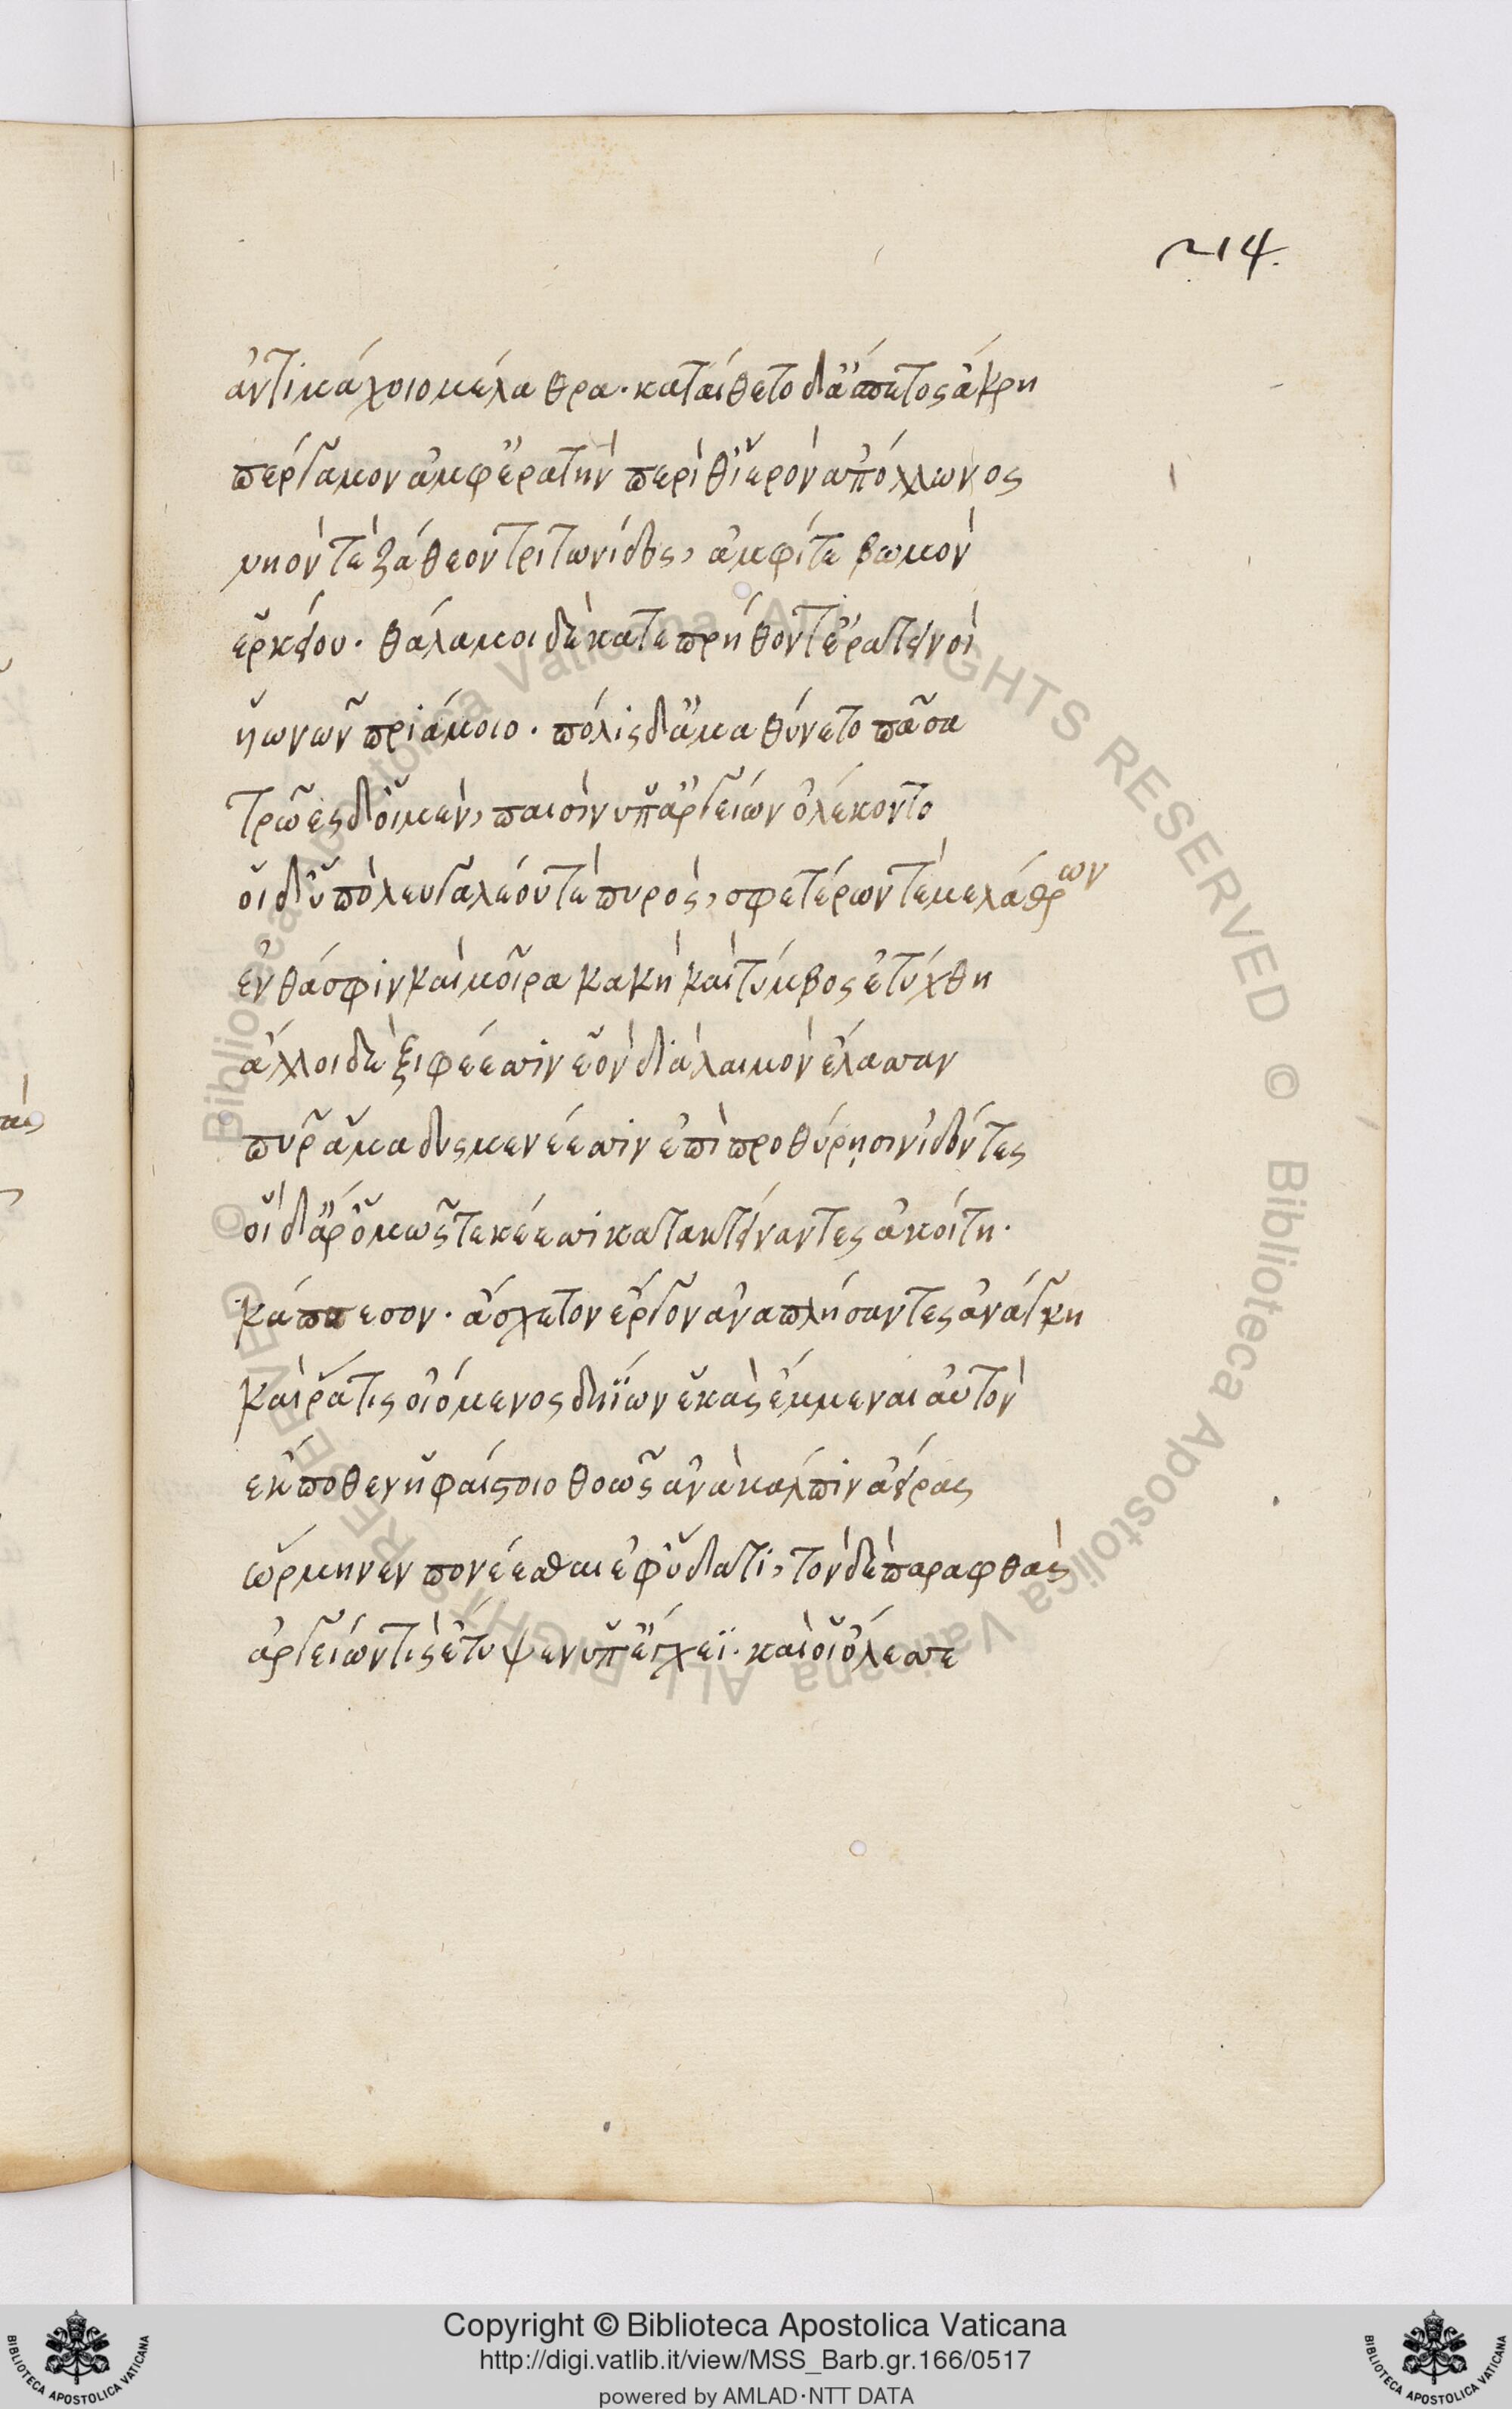 214.
ἀντιμάχοιο μέλαθρα· καταίθετο δ' ἄπετος ἄκρη
πέργαμον ἀμφ' ἐρατὴν περί θ' ἱερὸν ἀπόλλωνος
νηόν τε ζάθεον τριτωνίδος, ἀμφί τε βωμὸν
ἑρκείου· θάλαμοι δὲ κατεπρήθοντ' ἐρατεινοὶ
υἱωνῶν πριάμοιο· πόλις δ' ἀμαθύνετο πᾶσα
τρῶες δ' οἱ μὲν, παισὶν ὑπ' ἀργείων ὀλέκοντο
οἱ δ' ὑπὸ λευγαλέου τε πυρὸς, σφετέρων τε μελάθρων
ἔνθά σφιν καὶ μοῖρα κακὴ καὶ τύμβος ἐτύχθη
ἄλλοι δὲ ξιφέεσσιν ἑὸν διὰ λαιμὸν ἔλασσαν
πῦρ ἅμα δυςμενέεσσιν ἐπὶ προθύρῃσιν ἰδόντες
οἱ δ' ἄρ' ὁμῶς τεκέεσσι κατακτείναντες ἀκοίτη·
κάππεσον· ἄσχετον ἔργον ἀναπλήσαντες ἀνάγκη
καί ῥά τις οἰόμενος δηΐων ἑκὰς ἔμμεναι αὐτὸν
ἔκποθεν ἡφαίστοιο θοῶς ἀνὰ κάλπιν ἀείρας
ὥρμηνεν πονέεσθαι ἐφ' ὕδατι, τὸν δὲ παραφθὰς
ἀργείων τις ἔτυψεν ὑπ' ἔγχεϊ· καὶ οἱ ὄλεσσε
Copyright © Biblioteca Apostolica Vaticana
http://digi.vatlib.it/view/MSS_Barb.gr.166/0517
powered by AMLAD·NTT DATA